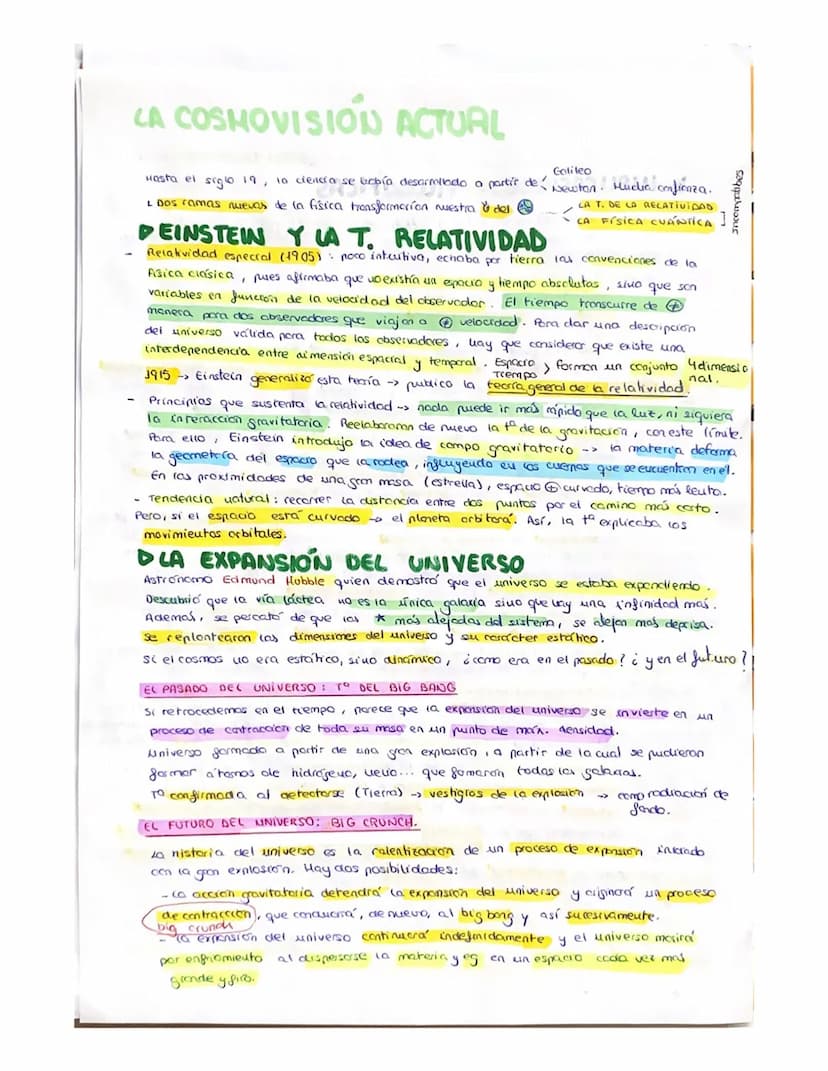 LA COSMOVISIÓN ACTUAL
Hasta el siglo 19, la ciencia se había desarrollado a partir de Galileo Newton. Mucha confianza.
Dos ramas nuevas de la física transformarían nuestra del LA T. DE LA RELATIVIDAD LA FÍSICA CUÁNTICA incompatibles
EINSTEIN Y LA T. RELATIVIDAD
- Relatividad especial (1905): poco intuitiva, echaba por tierra las convenciones de la
física clásica, pues afirmaba que no existía un espacio y tiempo absolutos, sino que son
variables en función de la velocidad del observador. El tiempo transcurre de ≠
manera para dos observadores que viajan a ≠ velocidad. Para dar una descripción
del universo válida para todos los observadores, hay que considerar que existe una
interdependencia entre dimensión espacial y temporal. Espacio Tiempo > forman un conjunto 4dimensional.
1915 → Einstein generalizó esta teoría → publicó la teoría general de la relatividad.
- Principios que sustenta la relatividad → nada puede ir más rápido que la luz, ni siquiera
la interacción gravitatoria. Reelaboraron de nuevo la tª de la gravitación, con este límite.
Para ello, Einstein introdujo la idea de campo gravitatorio → la materia deforma
la geometría del espacio que la rodea, influyendo en los cuerpos que se encuentran en el.
En las proximidades de una gran masa (estrella), espacio + curvado, tiempo más lento.
- Tendencia natural: recorrer la distancia entre dos puntos por el camino más corto.
Pero, si el espacio está curvado → el planeta orbitará. Así, la tª explicaba los
movimientos orbitales.
LA EXPANSIÓN DEL UNIVERSO
Astrónomo Edmund Hubble quien demostró que el universo se estaba expandiendo.
Descubrió que la vía láctea no es la única galaxia sino que hay una infinidad más.
Además, se percató de que las ★ más alejadas del sistema, se alejan más deprisa.
Se replantearon las dimensiones del universo y su carácter estático.
Si el cosmos no era estático, sino dinámico, ¿cómo era en el pasado? ¿y en el futuro?
EL PASADO DEL UNIVERSO: Tª DEL BIG BANG
Si retrocedemos en el tiempo, parece que la expansión del universo se invierte en un
proceso de contracción de toda su masa en un punto de máx. densidad.
Universo formado a partir de una gran explosión, a partir de la cual se pudieron
formar átomos de hidrógeno, helio... que formaron todas las galaxias.
Tª confirmada al detectarse (Tierra) → vestigios de la explosión → como radiación de
fondo.
EL FUTURO DEL UNIVERSO: BIG CRUNCH.
La historia del universo es la ralentización de un proceso de expansión iniciado
con la gran explosión. Hay dos posibilidades:
- La acción gravitatoria detendrá la expansión del universo y originará un proceso
de contracción, que conducirá, de nuevo, al big bang y así sucesivamente.
big crunch
- La expansión del universo continuará indefinidamente y el universo morirá
por enfriamiento al dispersarse la materia y eg en un espacio cada vez más
grande y frío.